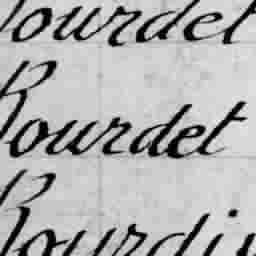 Bourdet
Bourdet
Bourdi